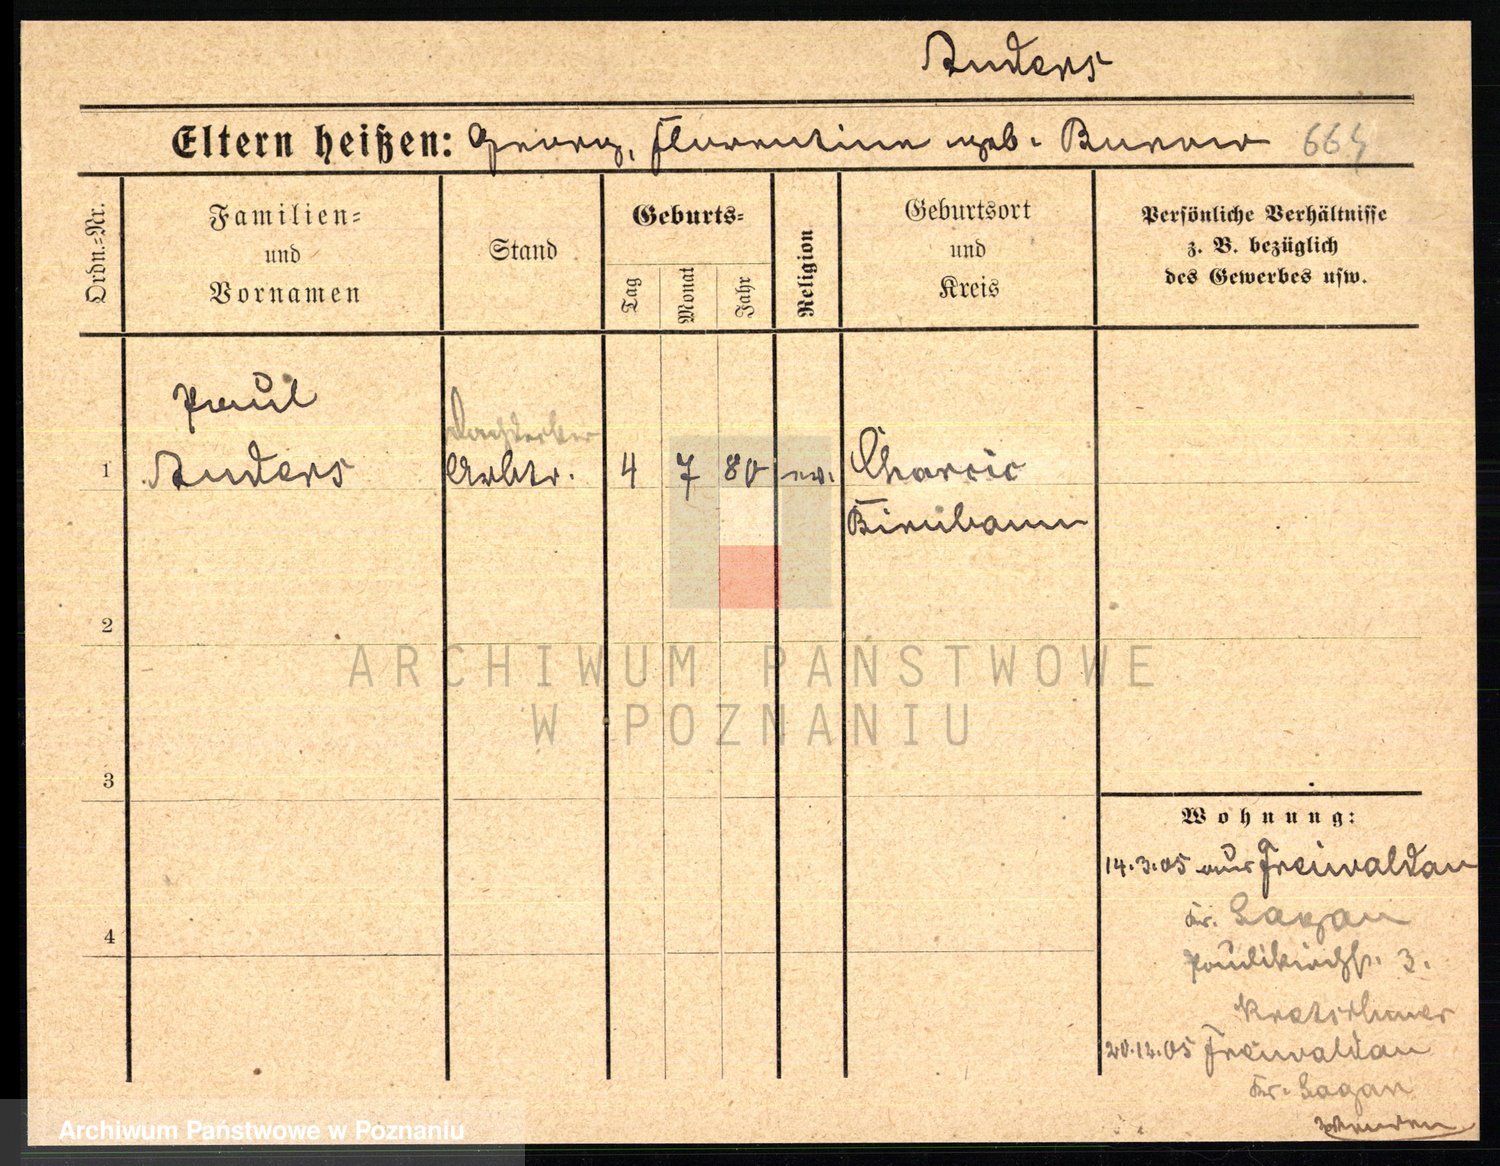 Anders
Eltern heißen: Georg, Florentine geb. Burow 664
Ordn.=Nr.
Familien=
und
Vornamen
Stand
Geburts=
Tag
Monat
Jahr
Religion
Geburtsort
und
Kreis
Persönliche Verhältnisse
z. B. bezüglich
des Gewerbes usw.
Paul
Dachdecker
1 Anders Arbtr. 4 7 80 ev. Charcic
Birnbaum
2
ARCHIWUM PAŃSTWOWE
W POZNANIU
3
Wohnung:
14.3.05 aus Freiwaldau
Kr. Sagan
Paulikirchstr. 3.
Kretschmer
4
20.12.05 Freiwaldau
Kr. Sagan
wenden
Archiwum Państwowe w Poznaniu